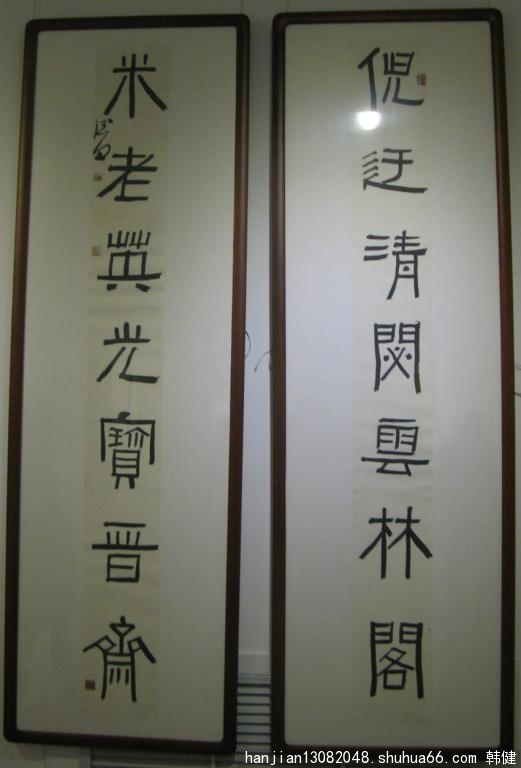 倪迂清閟雲林閣
米老英光寶晋齋
hanjian13082048.shuhua66.com 韩健